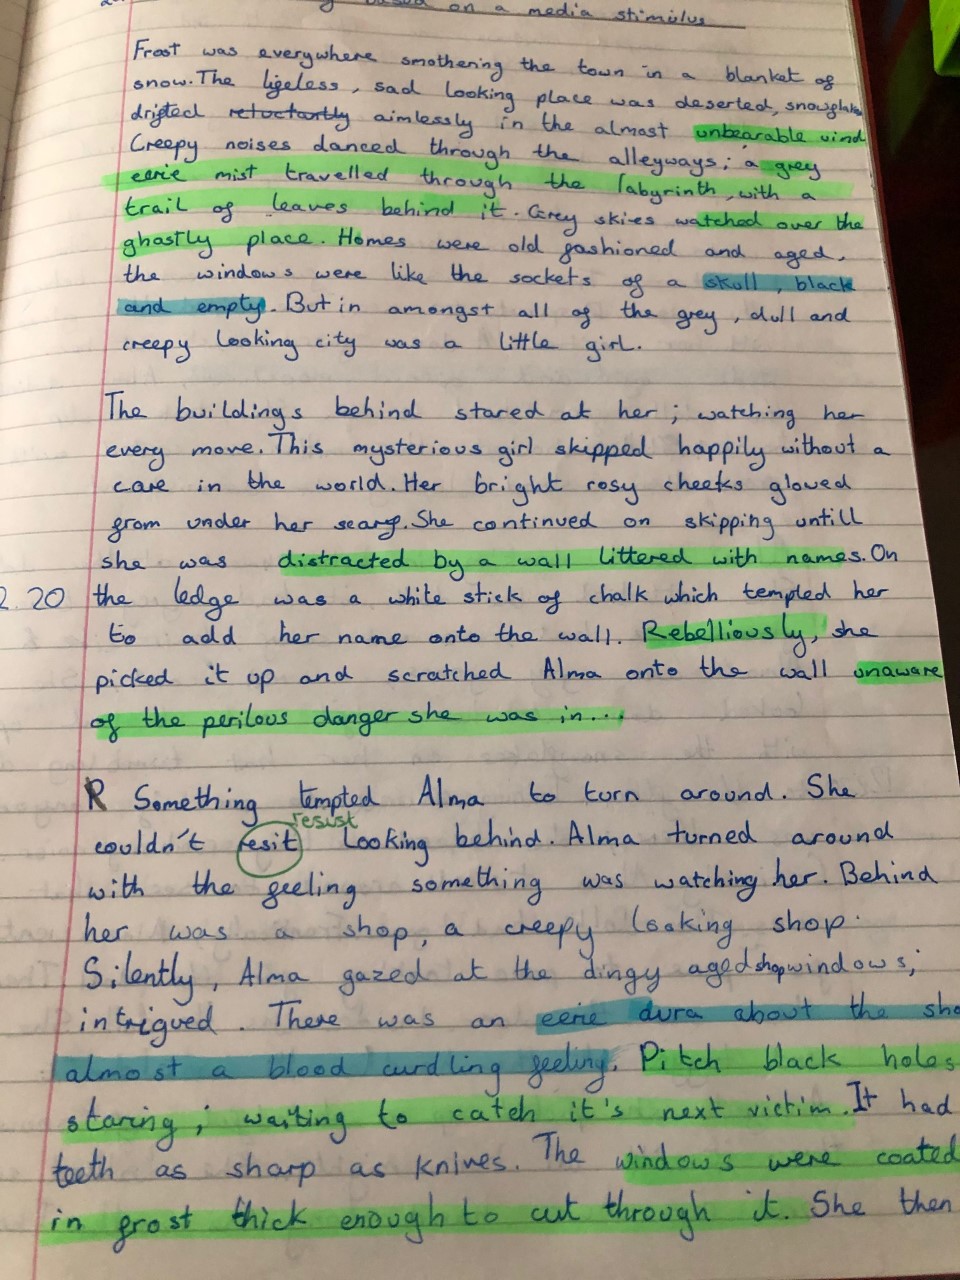 based on a media stimulus
Frost was everywhere smothering the town in a blanket of
snow. The lifeless, sad looking place was deserted, snowflakes
drifted reluctantly aimlessly in the almost unbearable wind
Creepy noises danced through the alleyways; a grey
eerie mist travelled through the labyrinth, with a
trail of leaves behind it. Grey skies watched over the
ghastly place. Homes were old fashioned and aged,
the windows were like the sockets of a skull, black
and empty. But in amongst all of the grey, dull and
creepy looking city was a little girl.
The buildings behind stared at her; watching her
every move. This mysterious girl skipped happily without a
care in the world. Her bright rosy cheeks glowed
from under her scarf. She continued on skipping untill
she was distracted by a wall littered with names. On
2.20 the ledge was a white stick of chalk which tempted her
to add her name onto the wall. Rebelliously, she
picked it up and scratched Alma onto the wall unaware
of the perilous danger she was in...
R Something tempted Alma to turn around. She
resist
couldn't resit looking behind. Alma turned around
with the feeling something was watching her. Behind
her was a shop, a creepy looking shop.
Silently, Alma gazed at the dingy aged shop windows;
intrigued. There was an eerie aura about the sho
almost a blood curdling feeling. Pitch black holes
staring; waiting to catch it's next victim. It had
teeth as sharp as knives. The windows were coated
in frost thick enough to cut through it. She then